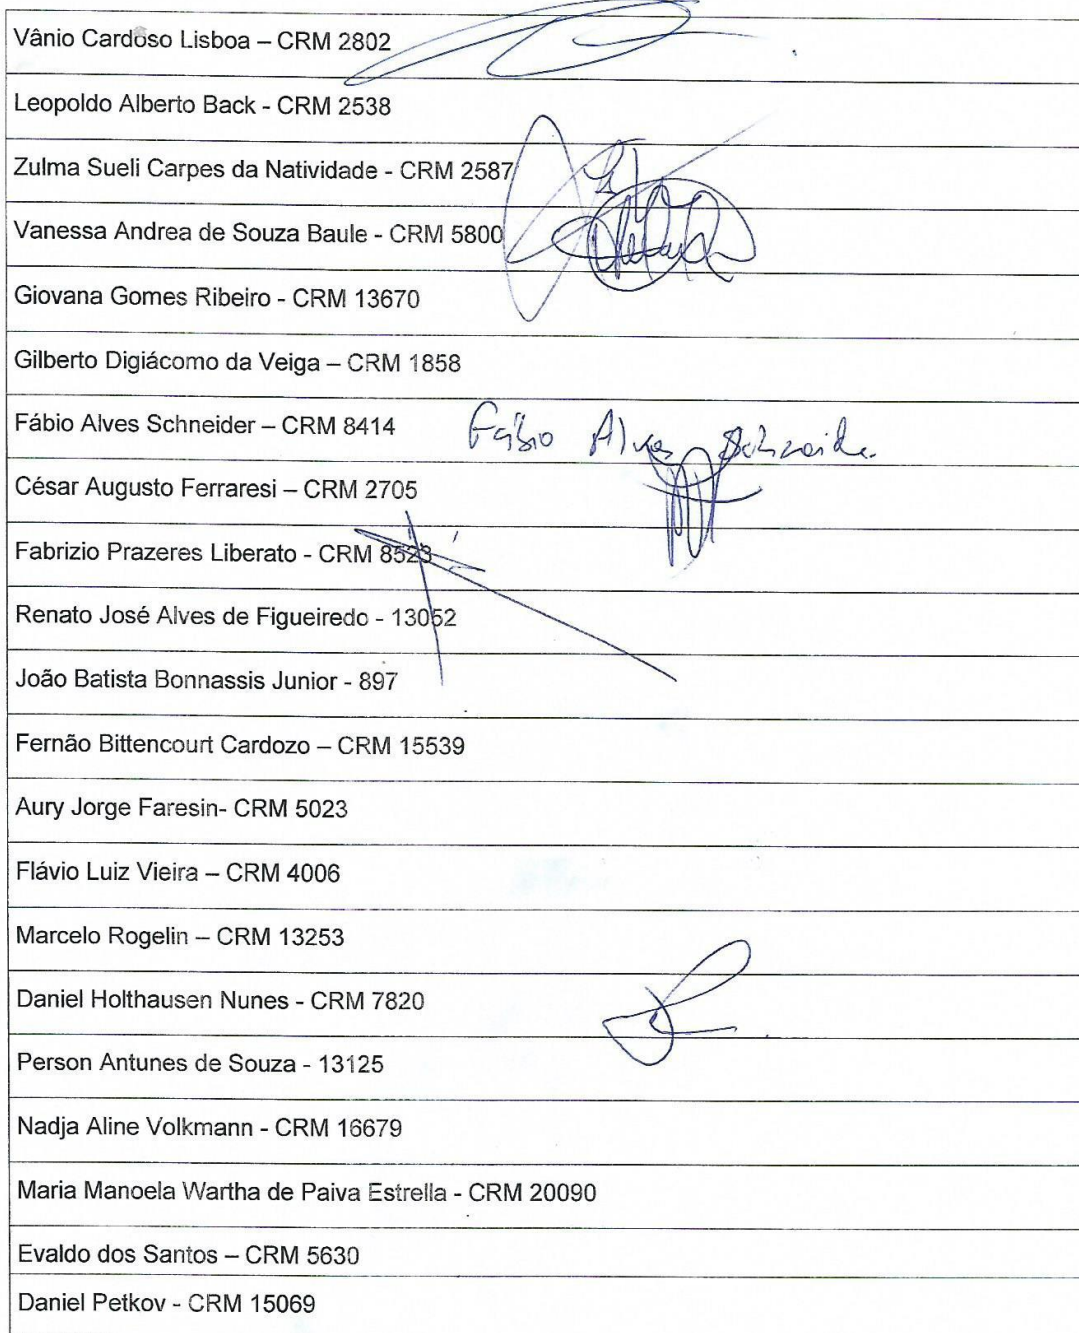 Vânio Cardoso Lisboa – CRM 2802
Leopoldo Alberto Back - CRM 2538
Zulma Sueli Carpes da Natividade - CRM 2587
Vanessa Andrea de Souza Baule - CRM 5800
Giovana Gomes Ribeiro - CRM 13670
Gilberto Digiácomo da Veiga – CRM 1858
Fábio Alves Schneider – CRM 8414 Fábio Alves Schneider
César Augusto Ferraresi – CRM 2705
Fabrizio Prazeres Liberato - CRM 8523
Renato José Alves de Figueiredo - 13052
João Batista Bonnassis Junior - 897
Fernão Bittencourt Cardozo – CRM 15539
Aury Jorge Faresin- CRM 5023
Flávio Luiz Vieira – CRM 4006
Marcelo Rogelin – CRM 13253
Daniel Holthausen Nunes - CRM 7820
Person Antunes de Souza - 13125
Nadja Aline Volkmann - CRM 16679
Maria Manoela Wartha de Paiva Estrella - CRM 20090
Evaldo dos Santos – CRM 5630
Daniel Petkov - CRM 15069